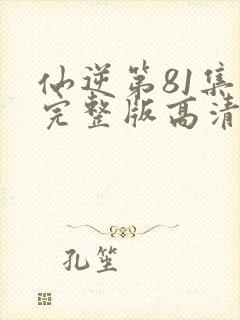 仙逆第81集
完整版高清
孔笙